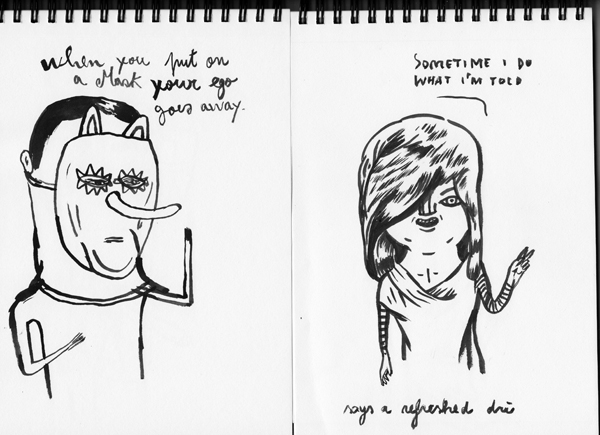 when you put on
a Mask your ego
goes away.
SOMETIME I DO
WHAT I'M TOLD
says a refreshed drè